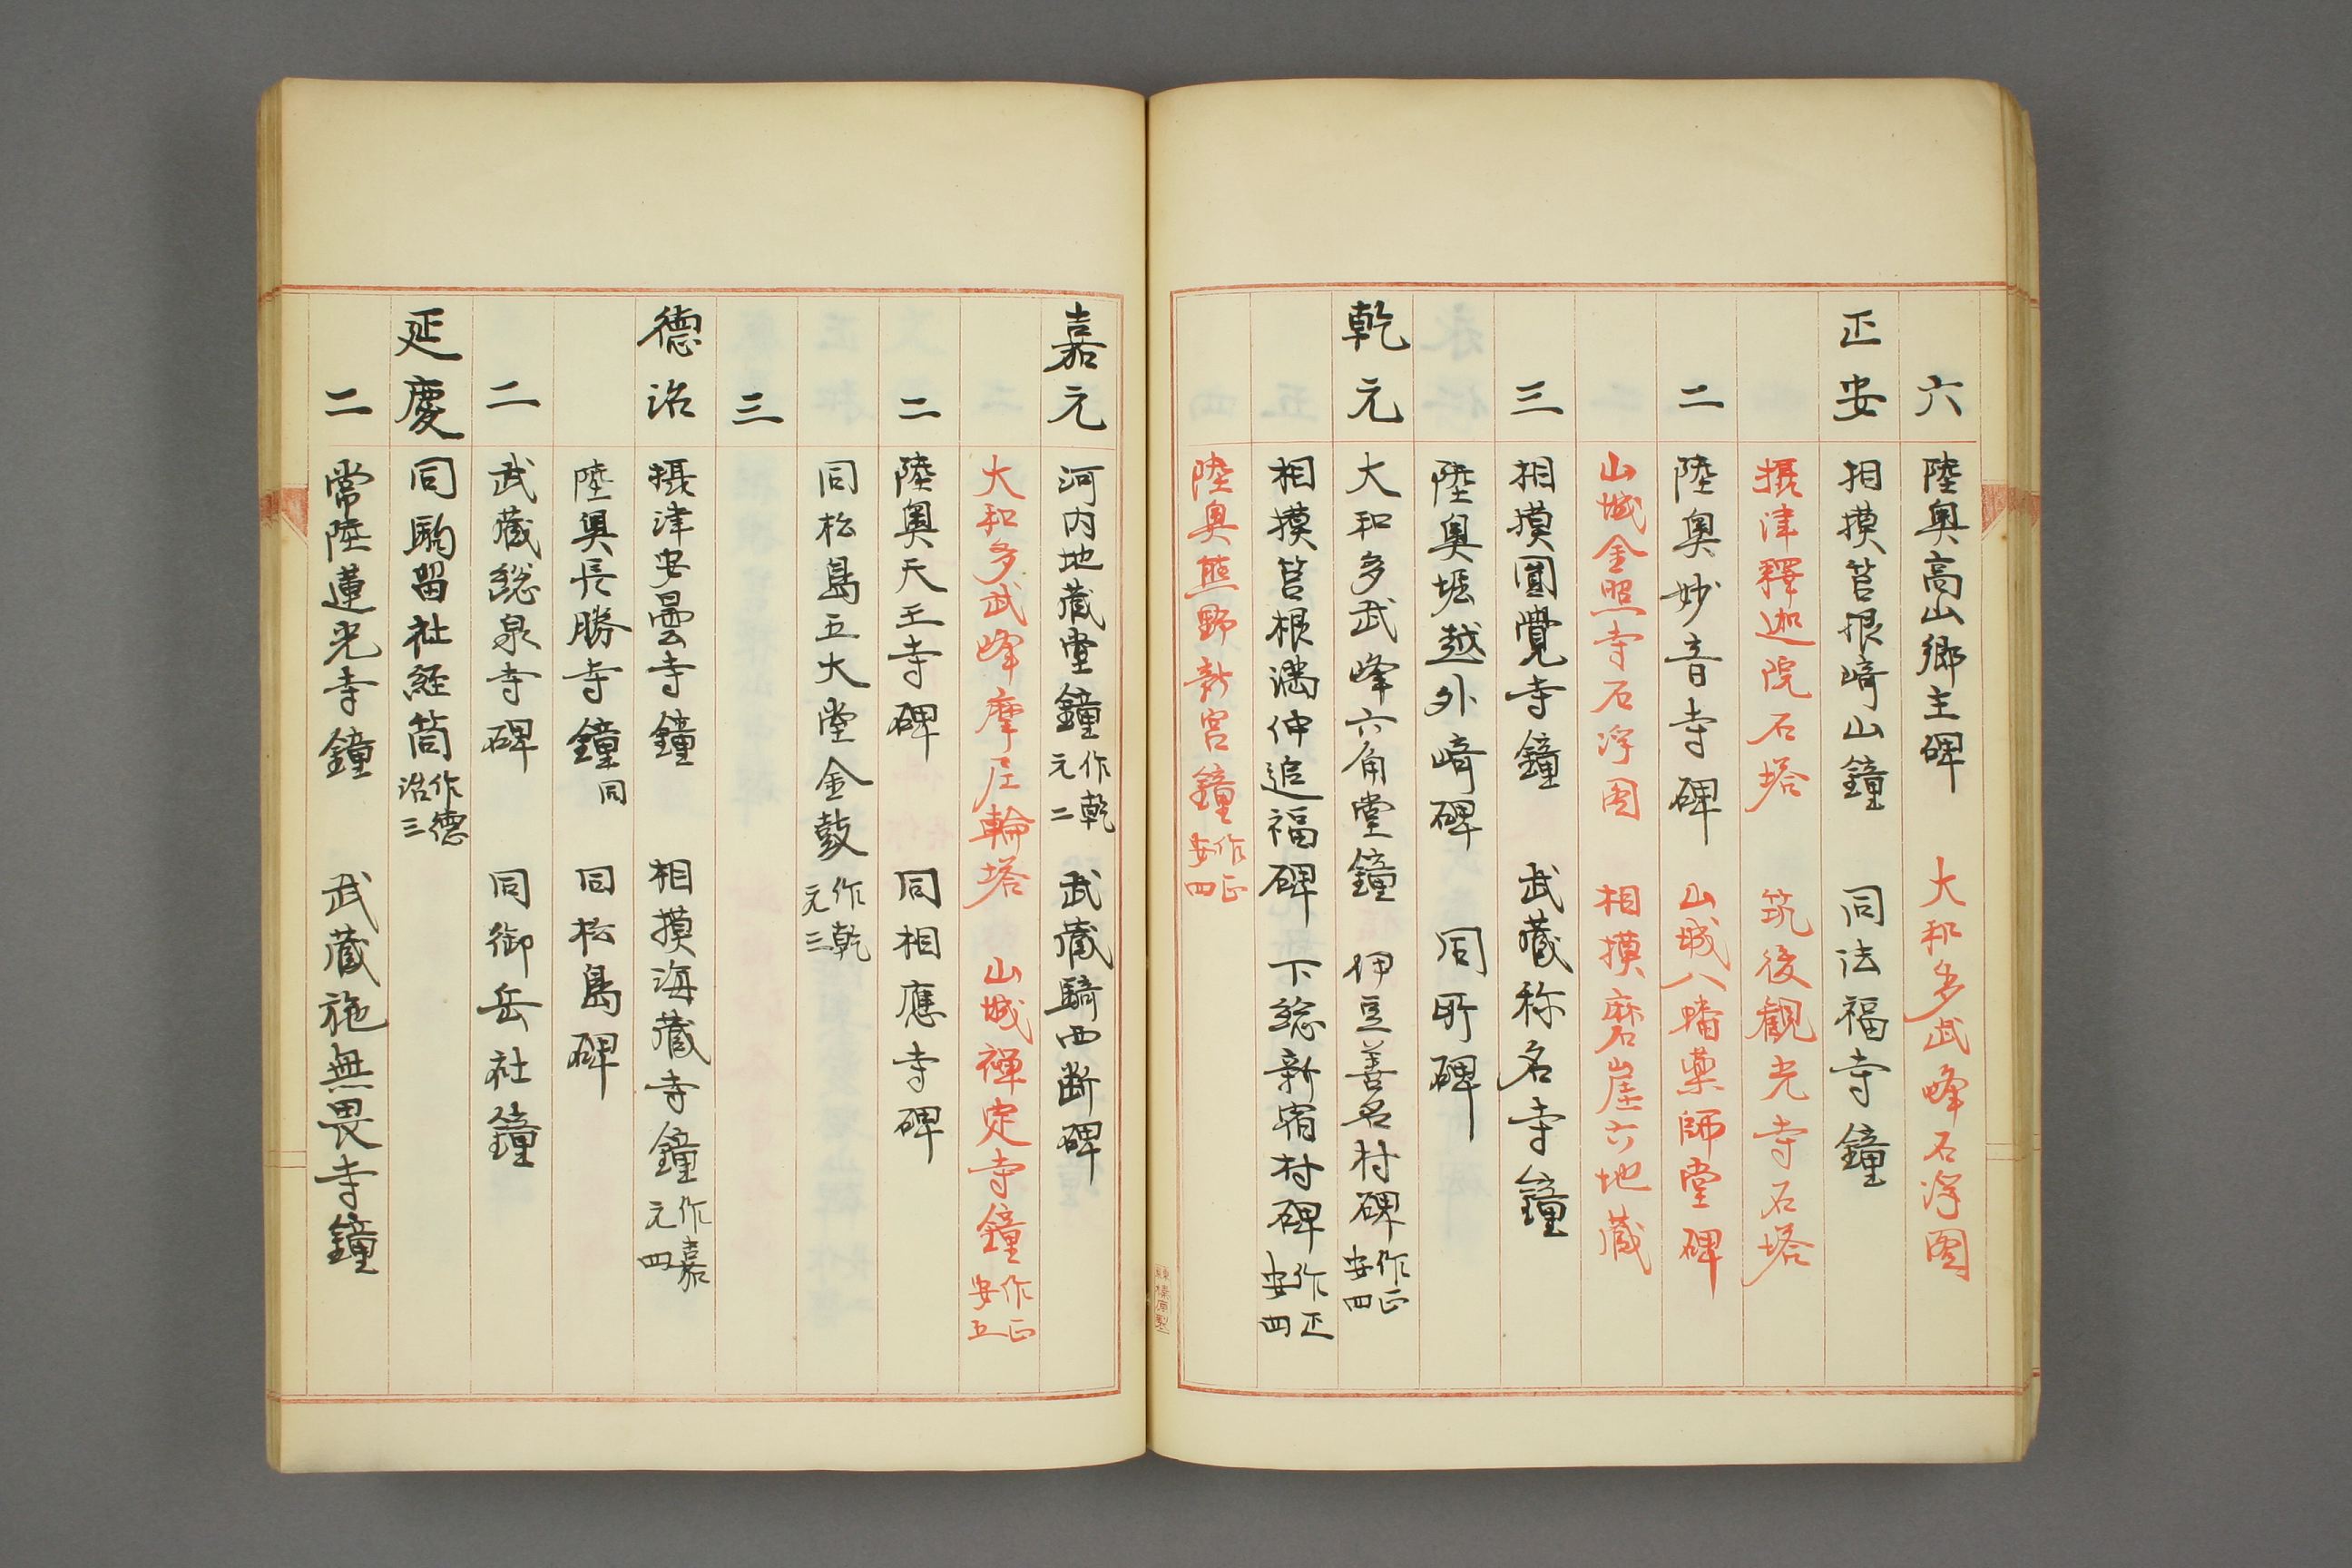 六 陸奥高山郷主碑 大和多武峰石浮図
正安 相摸筥根﨑山鐘 同法福寺鐘
摂津釋迦院石塔 筑後観光寺石塔
二 陸奥妙音寺碑 山城八幡薬師堂碑
山城金照寺石浮図 相摸磨崖六地蔵
三 相摸圓覺寺鐘 武蔵称名寺鐘
陸奥堀越外﨑碑 同所碑
乾元 大和多武峰六角堂鐘 伊豆善名村碑作正安四
相摸筥根満仲追福碑 下総新宿村碑作正安四
陸奥熊野新宮鐘作正安四
嘉元 河内地蔵堂鐘作乾元二 武蔵騎西断碑
大和多武峰摩尼輪塔 山城禅定寺鐘作正安五
二 陸奥天王寺碑 同相應寺碑
同松島五大堂金鼓作乾元三
三
德治 摂津安曇寺鐘 相摸海蔵寺鐘作嘉元四
陸奥長勝寺鐘同 同松島碑
二 武蔵総泉寺碑 同御岳社鐘
延慶 同駒留社経筒作德治三
二 常陸蓮光寺鐘 武蔵施無畏寺鐘